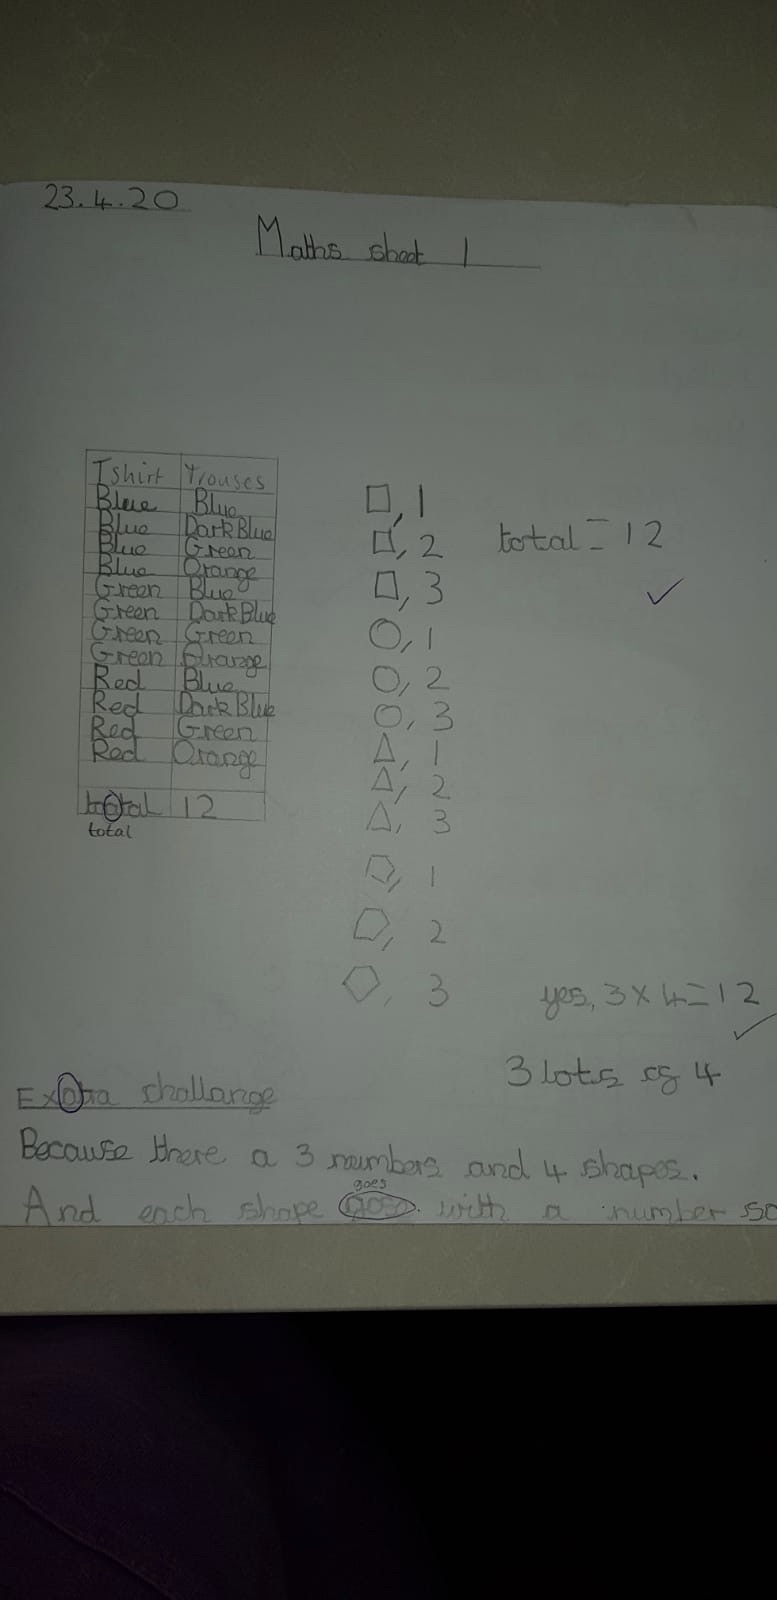 23.4.20
Maths sheet 1
Tshirt Trouses
Blue Blue
Blue Dark Blue
Blue Green
Blue Orange
Green Blue
Green Dark Blue
Green Green
Green Orange
Red Blue
Red Dark Blue
Red Green
Red Orange
total 12
total
□, 1
□, 2
□, 3
○, 1
○, 2
○, 3
△, 1
△, 2
△, 3
⬠, 1
⬠, 2
⬠, 3
total = 12
yes, 3 × 4 = 12
3 lots of 4
challange
Because there a 3 numbers and 4 shapes.
goes
And each shape with a number so